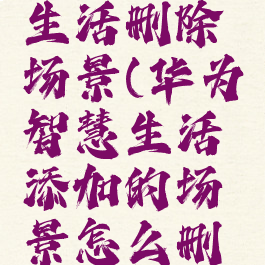 生活删除
场景(华为
智慧生活
添加的场
景怎么删